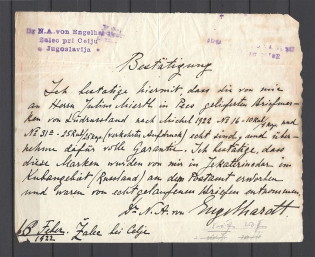 Dr N.A. von Engelhardt
Zalec pri Celju
Jugoslavija
Bestätigung
Ich bestätige hiermit dass die von mir
an Herrn Julius Mierth in Pees gelieferten Briefmar-
ken von Südrussland nach Michel 1922 No 16-10Rbl/
No 31a - 25Rbl/ (verkehrter Aufdruck) echt sind, und über-
nehme dafür volle Garantie. Ich bestätige, dass
diese Marken wurden von mir in Jekaterinodar im
Kubangebiet (Russland) an dem Postamt erworben
und waren von echt gelaufenen Briefen entnommen
Dr. N. A. von Engelhardt
Febr. Žalec bei Celje
1922